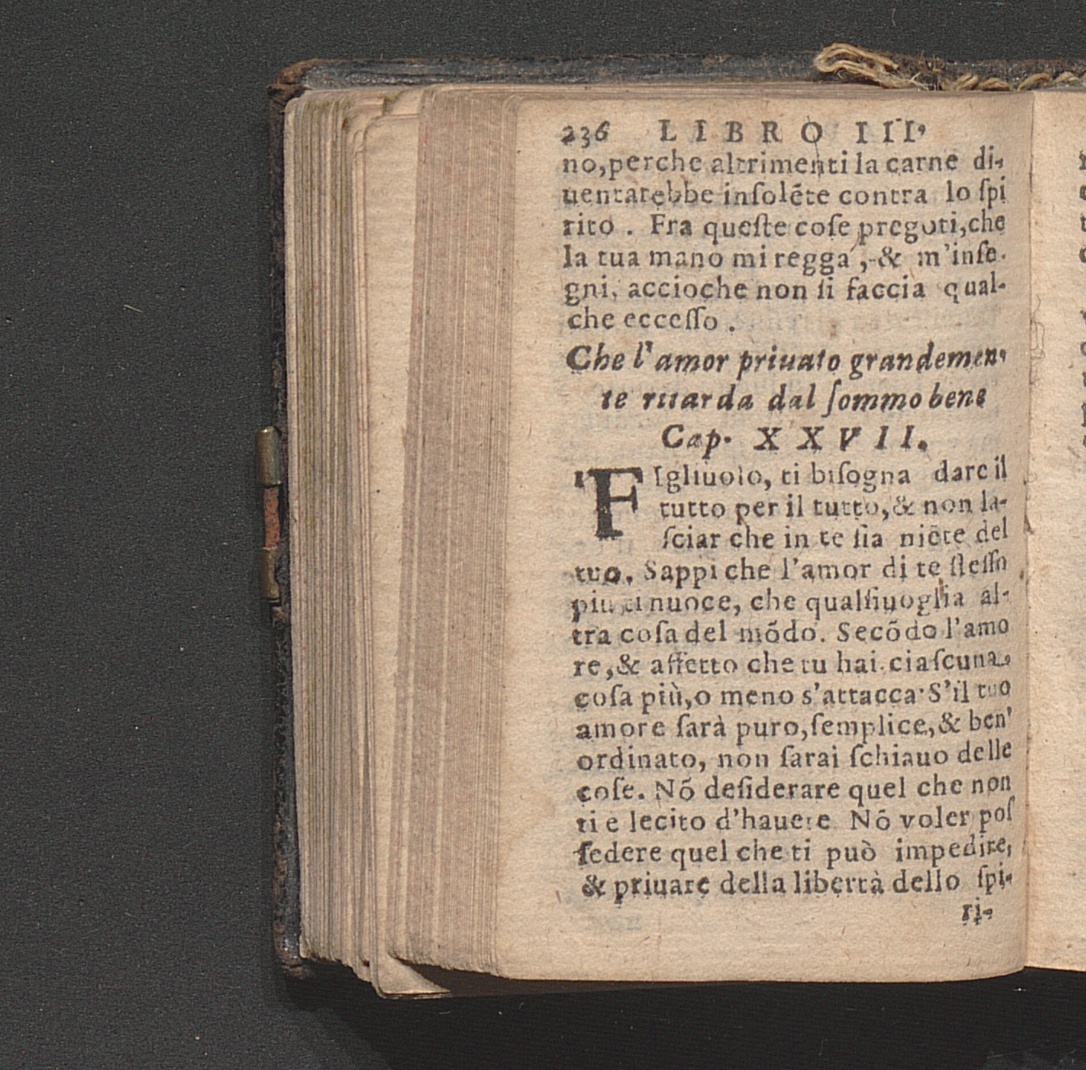 236 LIBRO III.
no, perche altrimenti la carne di-
uentarebbe inſolẽte contra lo ſpi
rito . Fra queſte coſe pregoti, che
la tua mano mi regga , & m'inſe-
gni, accioche non ſi faccia qual-
che ecceſſo .
Che l'amor priuato grandemen-
te ritarda dal ſommo bene
Cap. XXVII.
FIgliuolo, ti biſogna dare il
tutto per il tutto, & non la-
ſciar che in te ſia niẽte del
tuo. Sappi che l'amor di te ſteſſo
piu ti nuoce, che qualſiuoglia al-
tra coſa del mõdo. Secõdo l'amo
re, & affetto che tu hai ciaſcuna
coſa più, o meno s'attacca. S'il tuo
amore ſarà puro, ſemplice, & ben'
ordinato, non ſarai ſchiauo delle
coſe. Nõ deſiderare quel che non
ti e lecito d'hauere Nõ voler poſ
ſedere quel che ti può impedire,
& priuare della libertà dello ſpi-
ri-